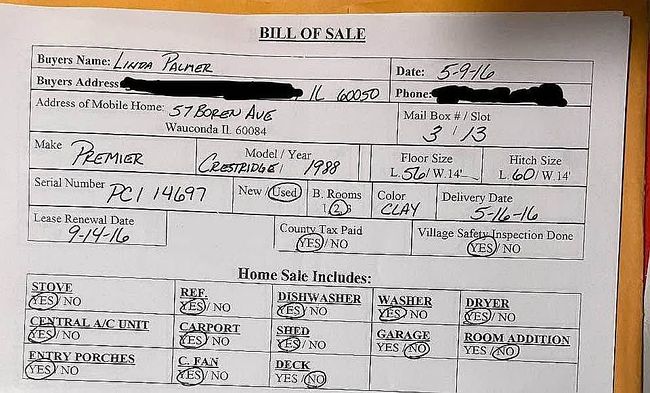 BILL OF SALE
Buyers Name: LINDA PALMER
Date: 5-9-16
Buyers Address , IL 60050
Phone:
Address of Mobile Home: 57 BOREN AVE
Wauconda Il. 60084
Mail Box # / Slot
3 / 13
Make PREMIER
Model / Year
CRESTRIDGE / 1988
Floor Size
L. 56/ W.14'
Hitch Size
L. 60/ W.14'
Serial Number PCI 14697
New / Used
B. Rooms
1 2 3
Color
CLAY
Delivery Date
5-16-16
Lease Renewal Date
9-14-16
County Tax Paid
YES / NO
Village Safety Inspection Done
YES / NO
Home Sale Includes:
STOVE
YES / NO
REF.
YES / NO
DISHWASHER
YES / NO
WASHER
YES / NO
DRYER
YES / NO
CENTRAL A/C UNIT
YES / NO
CARPORT
YES / NO
SHED
YES / NO
GARAGE
YES / NO
ROOM ADDITION
YES / NO
ENTRY PORCHES
YES / NO
C. FAN
YES / NO
DECK
YES / NO